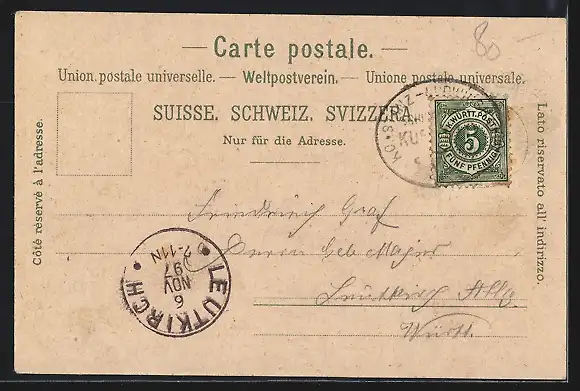 80
— Carte postale. —
Union postale universelle. — Weltpostverein. — Unione postale universale.
SUISSE. SCHWEIZ. SVIZZERA.
Nur für die Adresse.
Côté réservé à l'adresse.
Lato riservato all' indirizzo.
K. WÜRTT. POST
5
FÜNF PFENNIG
Friedrich Graf
Leutkirch
Württ.
LEUTKIRCH
6
NOV
97